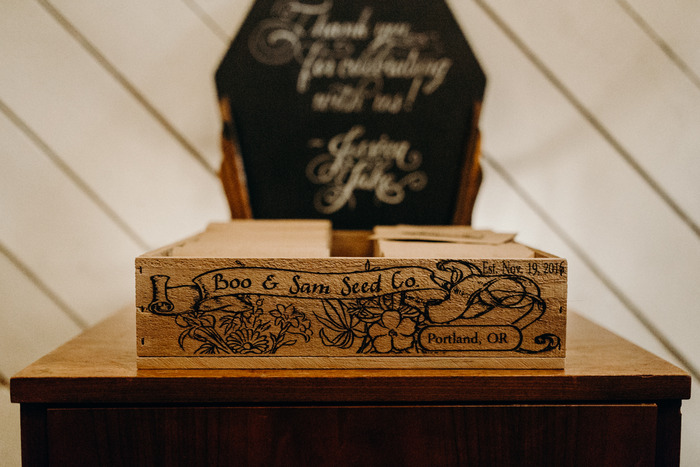 Thank you
for celebrating
with us!
~ Jessica
& Jake
Boo & Sam Seed Co.
Est. Nov. 19, 2016
Portland, OR